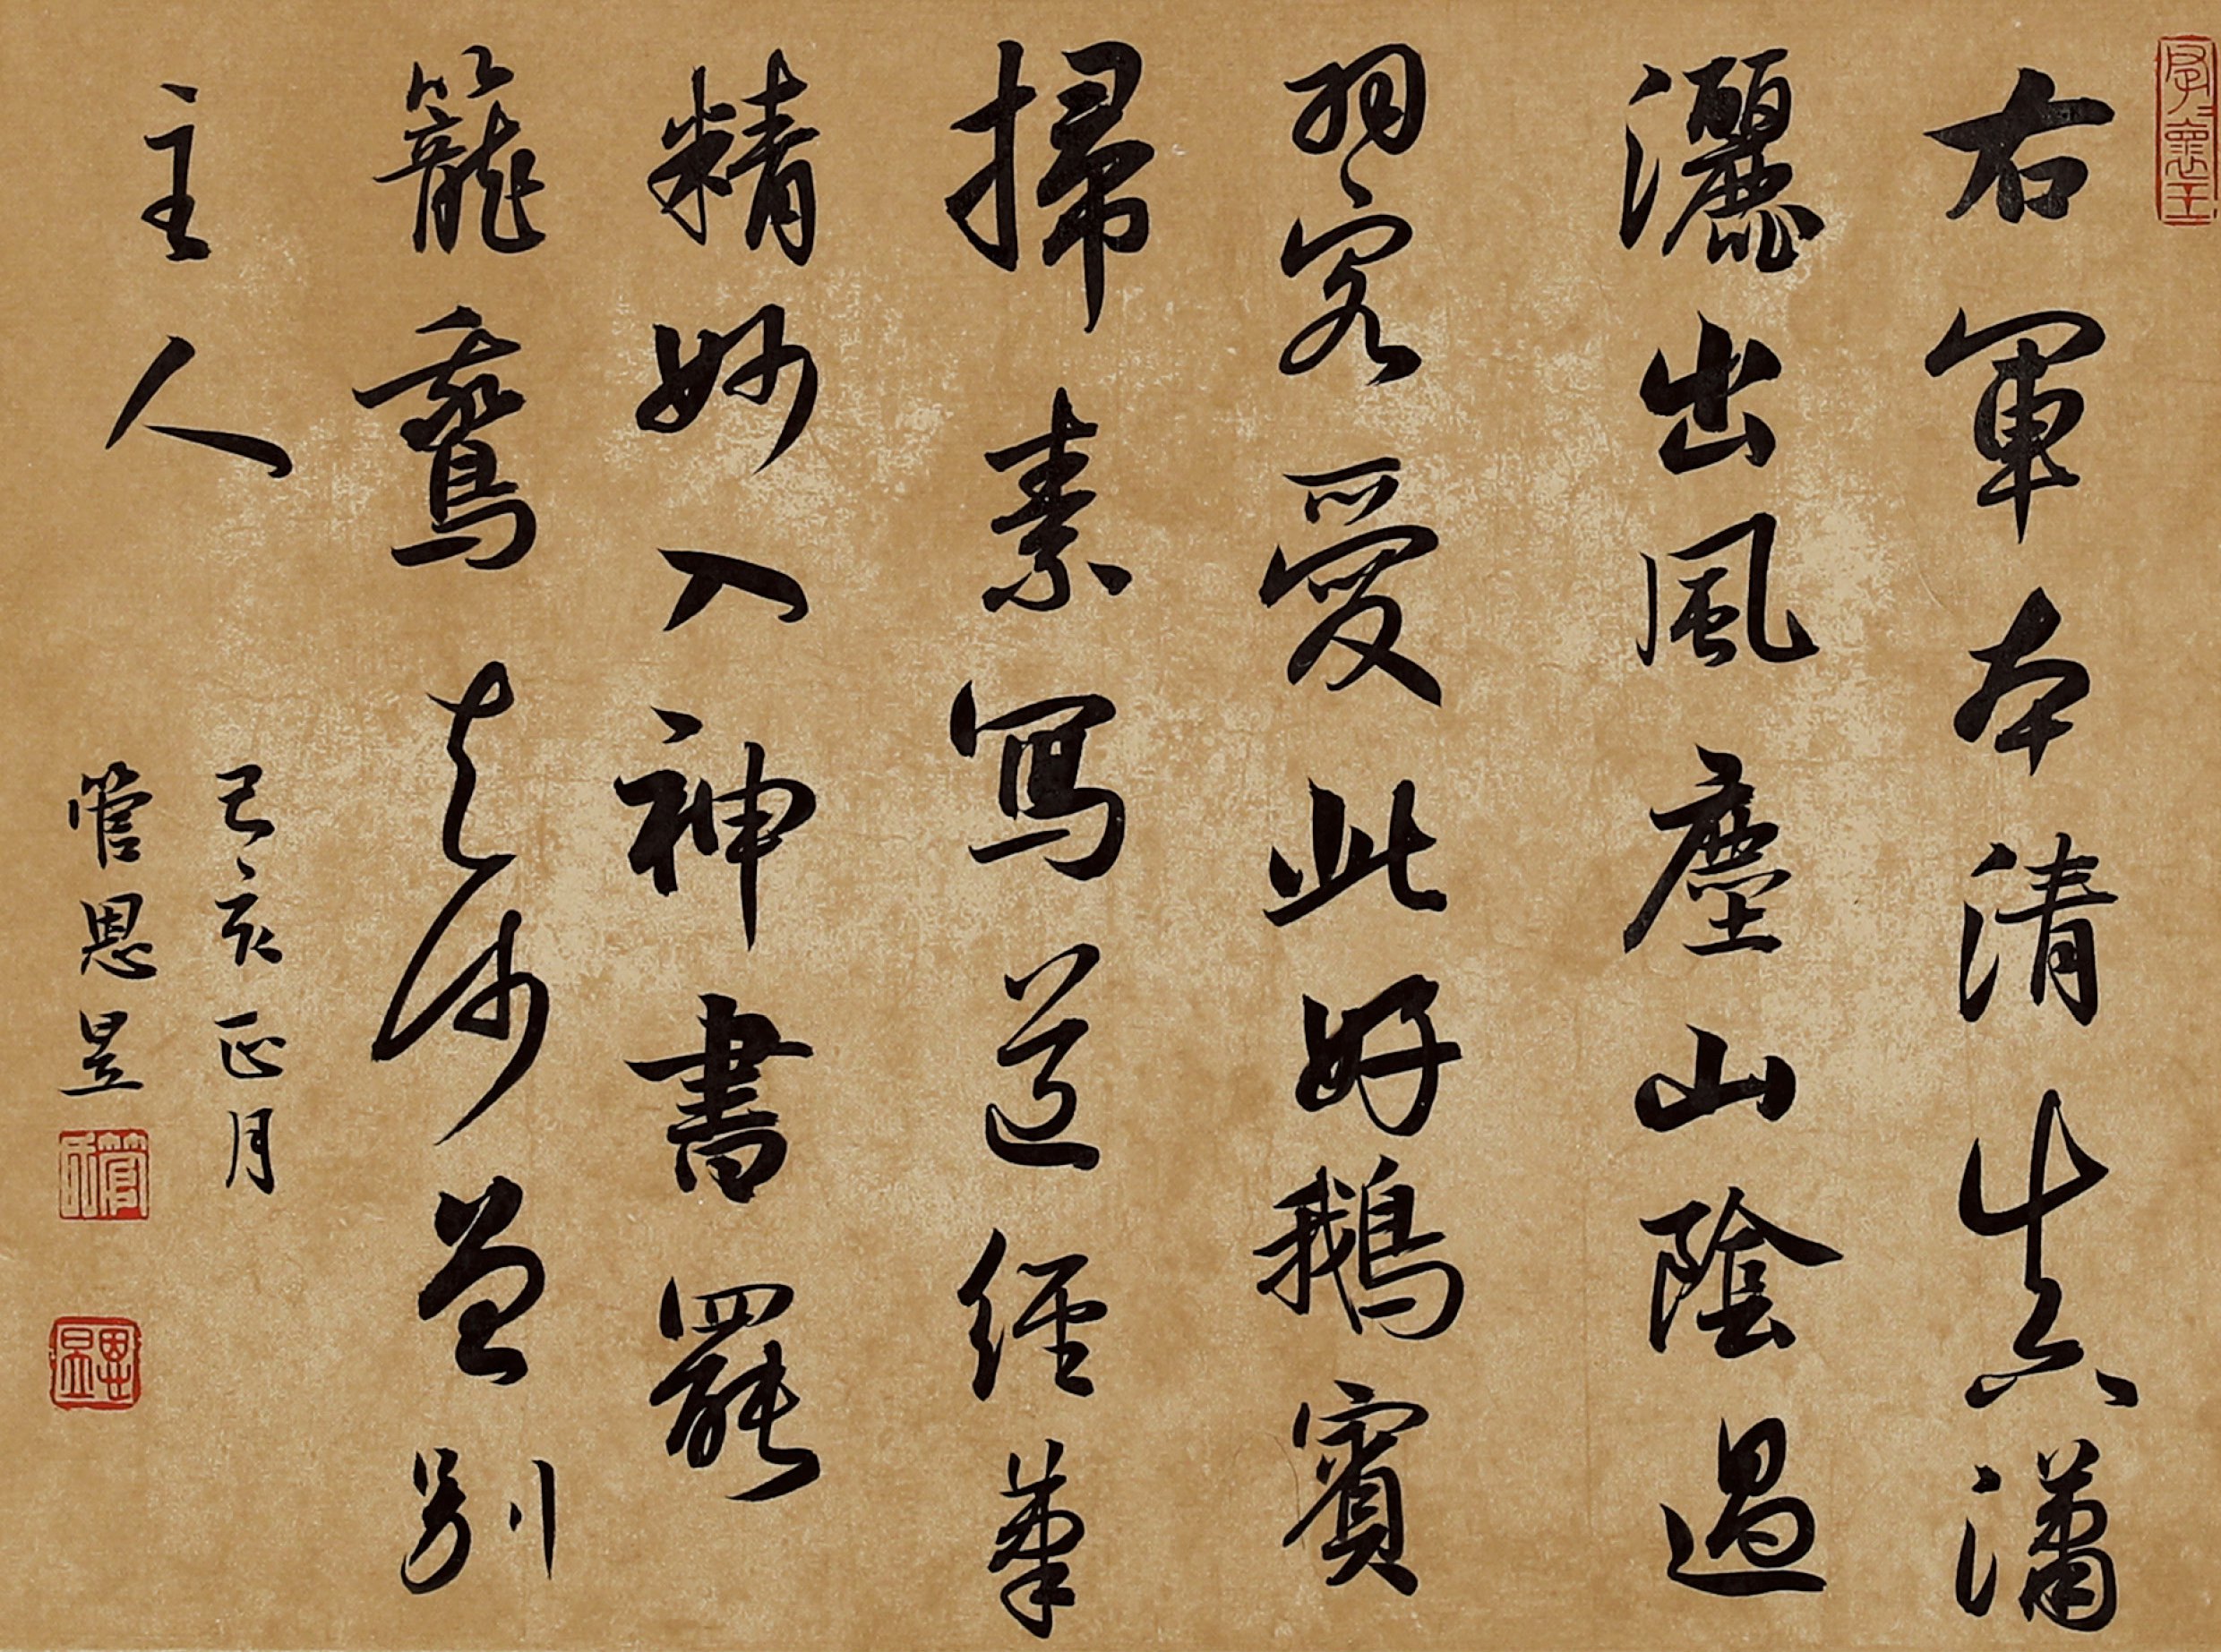 右軍本清真瀟
灑出風塵山陰過
羽客愛此好鵝賓
掃素寫道經筆
精妙入神書罷
籠鵞去何曾別
主人
己亥正月
管恩昱
管印
恩昱